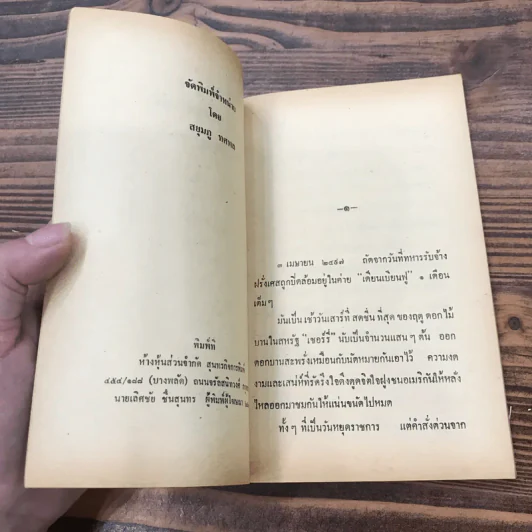 จัดพิมพ์จำหน่าย
โดย
สยุมภู ทศพล
พิมพ์ที่
ห้างหุ้นส่วนจำกัด
๔๕๔/๑๘๘ (บางพลัด) ถนนจรัลสนิทวงศ์
นายเลิศชัย ชื่นสุนทร ผู้พิมพ์ผู้โฆษณา
—๑—
๓ เมษายน ๒๔๙๗ ถัดจากวันที่ทหารรับจ้าง
ฝรั่งเศสถูกปิดล้อมอยู่ในค่าย "เดียนเบียนฟู" ๑ เดือน
เต็มๆ
มันเป็นเช้าวันเสาร์ที่ สดชื่น ที่สุด ของฤดู ดอกไม้
บานในสหรัฐ "เชอร์รี่" นับเป็นจำนวนแสน ๆ ต้น ออก
ดอกบานสะพรั่งเหมือนกับนัดหมายกันเอาไว้ ความงด
งามและเสน่ห์ที่รัดรึงใจดึงดูดจิตใจฝูงชนอเมริกันให้หลั่ง
ไหลออกมาชมกันให้แน่นขนัดไปหมด
ทั้งๆ ที่เป็นวันหยุดราชการ แต่คำสั่งด่วนจาก